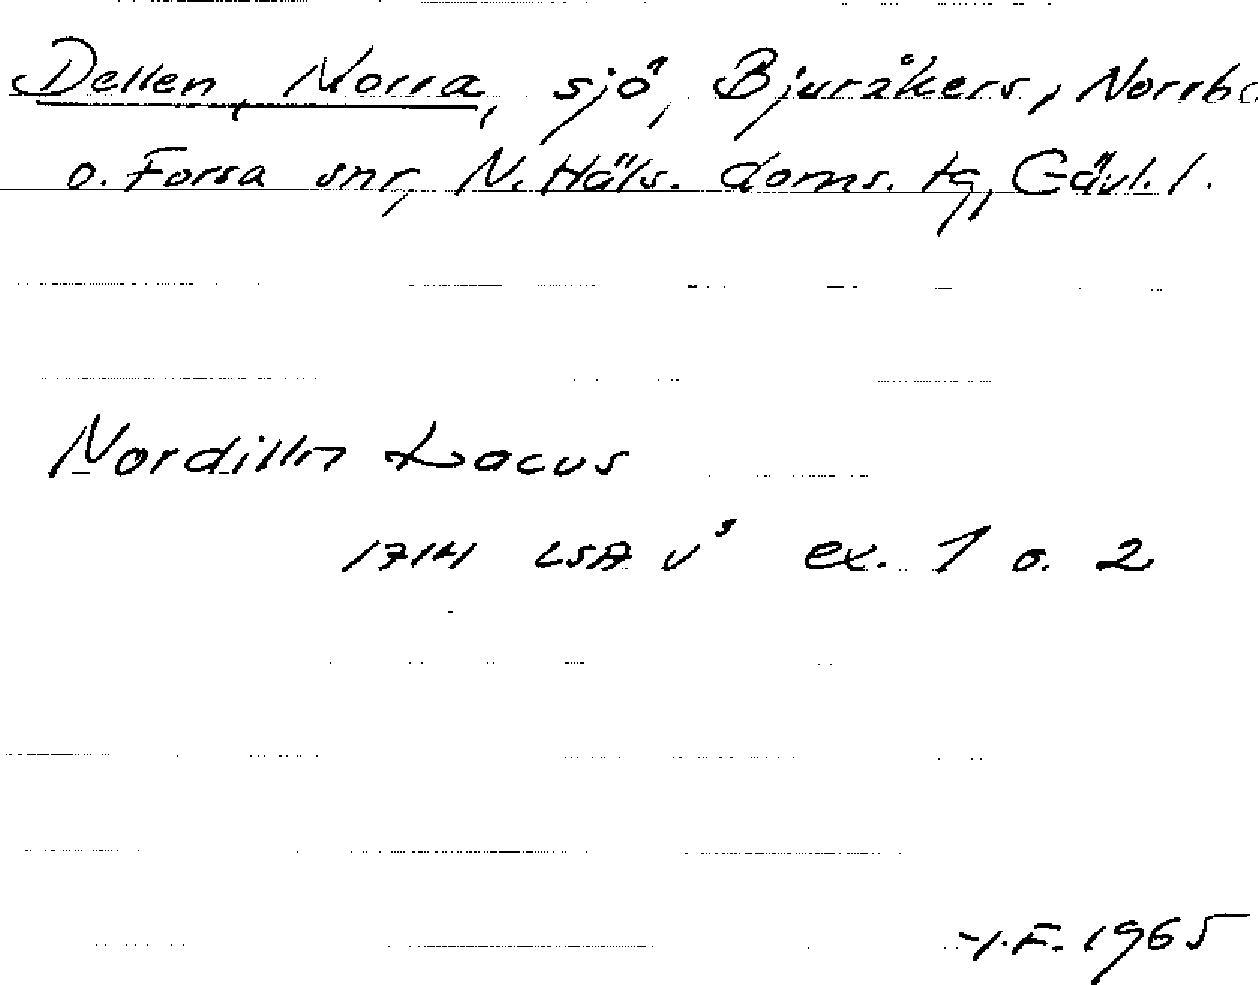 Dellen, Norra, sjö, Bjuråkers, Norrbo
o. Forsa snr, N. Häls. doms. tg, Gävl. l.
Nordilln Lacus
1714 LSA v⁵ ex. 1 o. 2
F. 1965